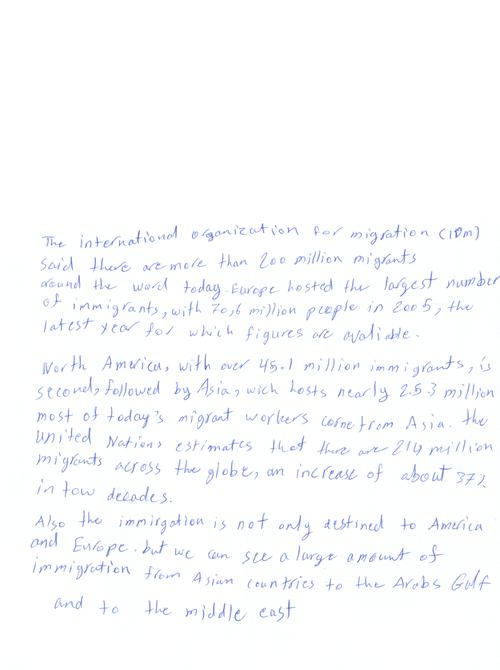 The international organization for migration (IOm)
Said there are more than 200 million migrants
around the word today. Europe hosted the largest number
of immigrants, with 70,6 million people in 2005, the
latest year for which figures are avaliable.
North America, with over 45.1 million immigrants, is
second, followed by Asia, wich hosts nearly 25.3 million
most of today's migrant workers come from Asia. the
United Nations estimates that there are 214 million
migrants across the globe, an increase of about 37%
in tow decades.
Also the immirgation is not only destined to America
and Europe. but we can see a large amount of
immigration from Asian countries to the Arabs Golf
and to the middle east